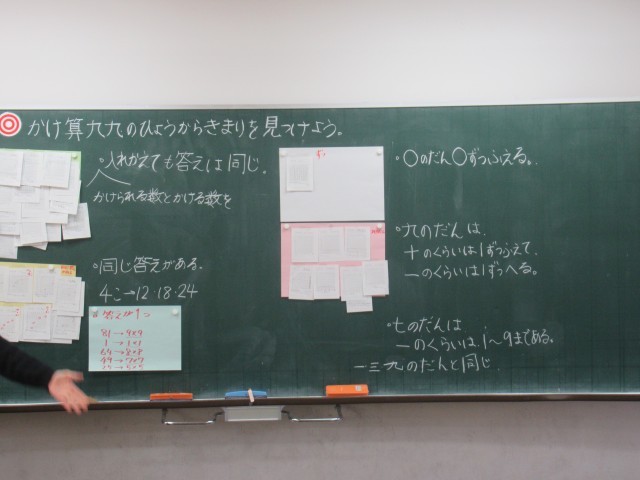 かけ算九九のひょうからきまりを見つけよう。
・入れかえても答えは同じ。
かけられる数とかける数を
・同じ答えがある。
4こ→12・18・24
答えが1つ
81→9×9
1→1×1
64→8×8
49→7×7
25→5×5
・〇のだん〇ずつふえる。
・九のだんは、
十のくらいは1ずつふえて、
一のくらいは1ずつへる。
・七のだんは
一のくらいは、1〜9まである。
一三九のだんと同じ